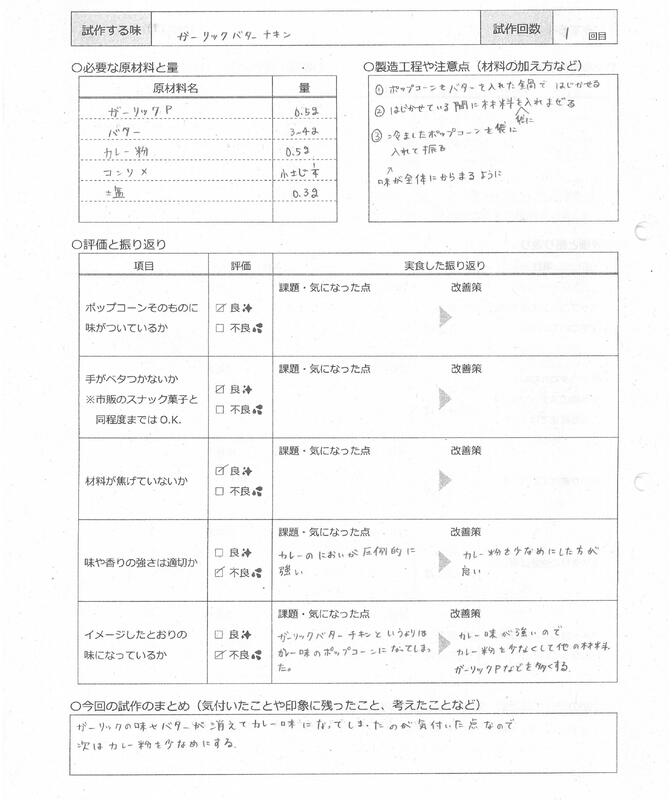 試作する味 ガーリックバターチキン 試作回数 1 回目
○必要な原材料と量
原材料名 量
ガーリックP 0.5g
バター 3-4g
カレー粉 0.5g
コンソメ 小さじ1/4
塩 0.3g
○製造工程や注意点（材料の加え方など）
① ポップコーンをバターを入れた全局で はじかせる
② はじかせている間に材料を入れまぜる
袋に
③ 冷ましたポップコーンを袋に
入れて振る
味が全体にからまるように
○評価と振り返り
項目 評価 実食した振り返り
ポップコーンそのものに
味がついているか
☑ 良
☐ 不良
課題・気になった点 改善策
手がベタつかないか
※市販のスナック菓子と
同程度まではO.K.
☑ 良
☐ 不良
課題・気になった点 改善策
材料が焦げていないか
☑ 良
☐ 不良
課題・気になった点 改善策
味や香りの強さは適切か
☐ 良
☑ 不良
課題・気になった点
カレーのにおいが圧倒的に
強い
改善策
カレー粉を少なめにした方が
良い
イメージしたとおりの
味になっているか
☐ 良
☑ 不良
課題・気になった点
ガーリックバターチキンというよりは
カレー味のポップコーンになってしまっ
た。
改善策
カレー味が強いので
カレー粉を少なくして他の材料
ガーリックPなどを多くする
○今回の試作のまとめ（気付いたことや印象に残ったこと、考えたことなど）
ガーリックの味やバターが消えてカレー味になってしまったのが気付いた点なので
次はカレー粉を少なめにする